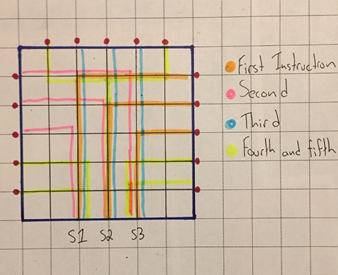 First Instruction
Second
Third
Fourth and fifth
S1 S2 S3